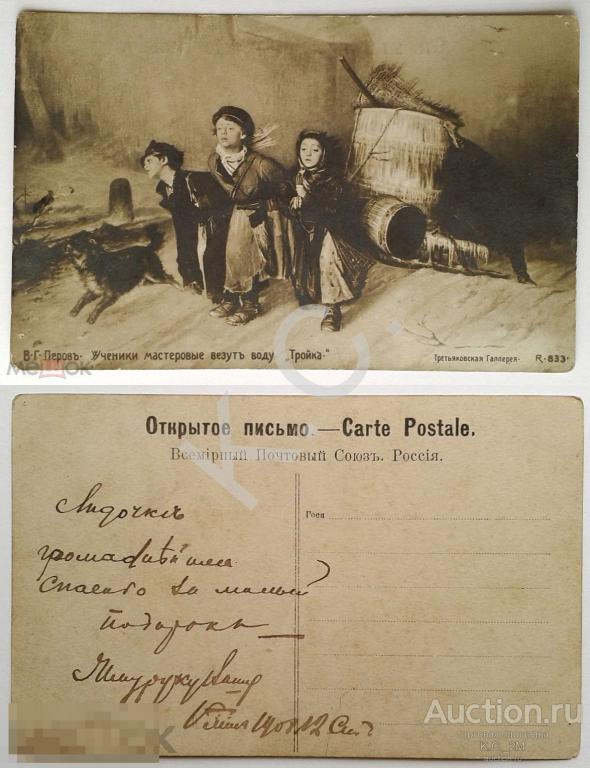 В·Г·Перовъ· Ученики мастеровые везутъ воду „Тройка·“
Третьяковская Галлерея· R·833·
МешОК
К.С.
Открытое письмо.—Carte Postale.
Всемірный Почтовый Союзъ. Россія.
Госп
Лидочкѣ
Спасибо за милый
подарокъ
Auction.ru